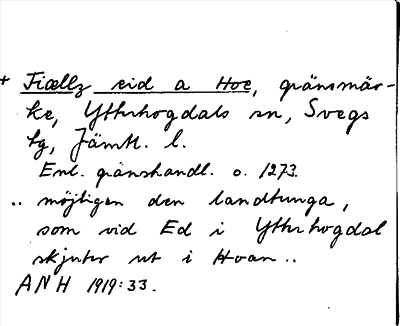 + Fiællz eid a Hoe, gränsmär-
ke, Ytterhogdals sn, Svegs
tg, Jämtl. l.
Enl. gränshandl. o. 1273.
.. möjligen den landtunga,
som vid Ed i Ytterhogdal
skjuter ut i Hoan ..
ANH 1919:33.